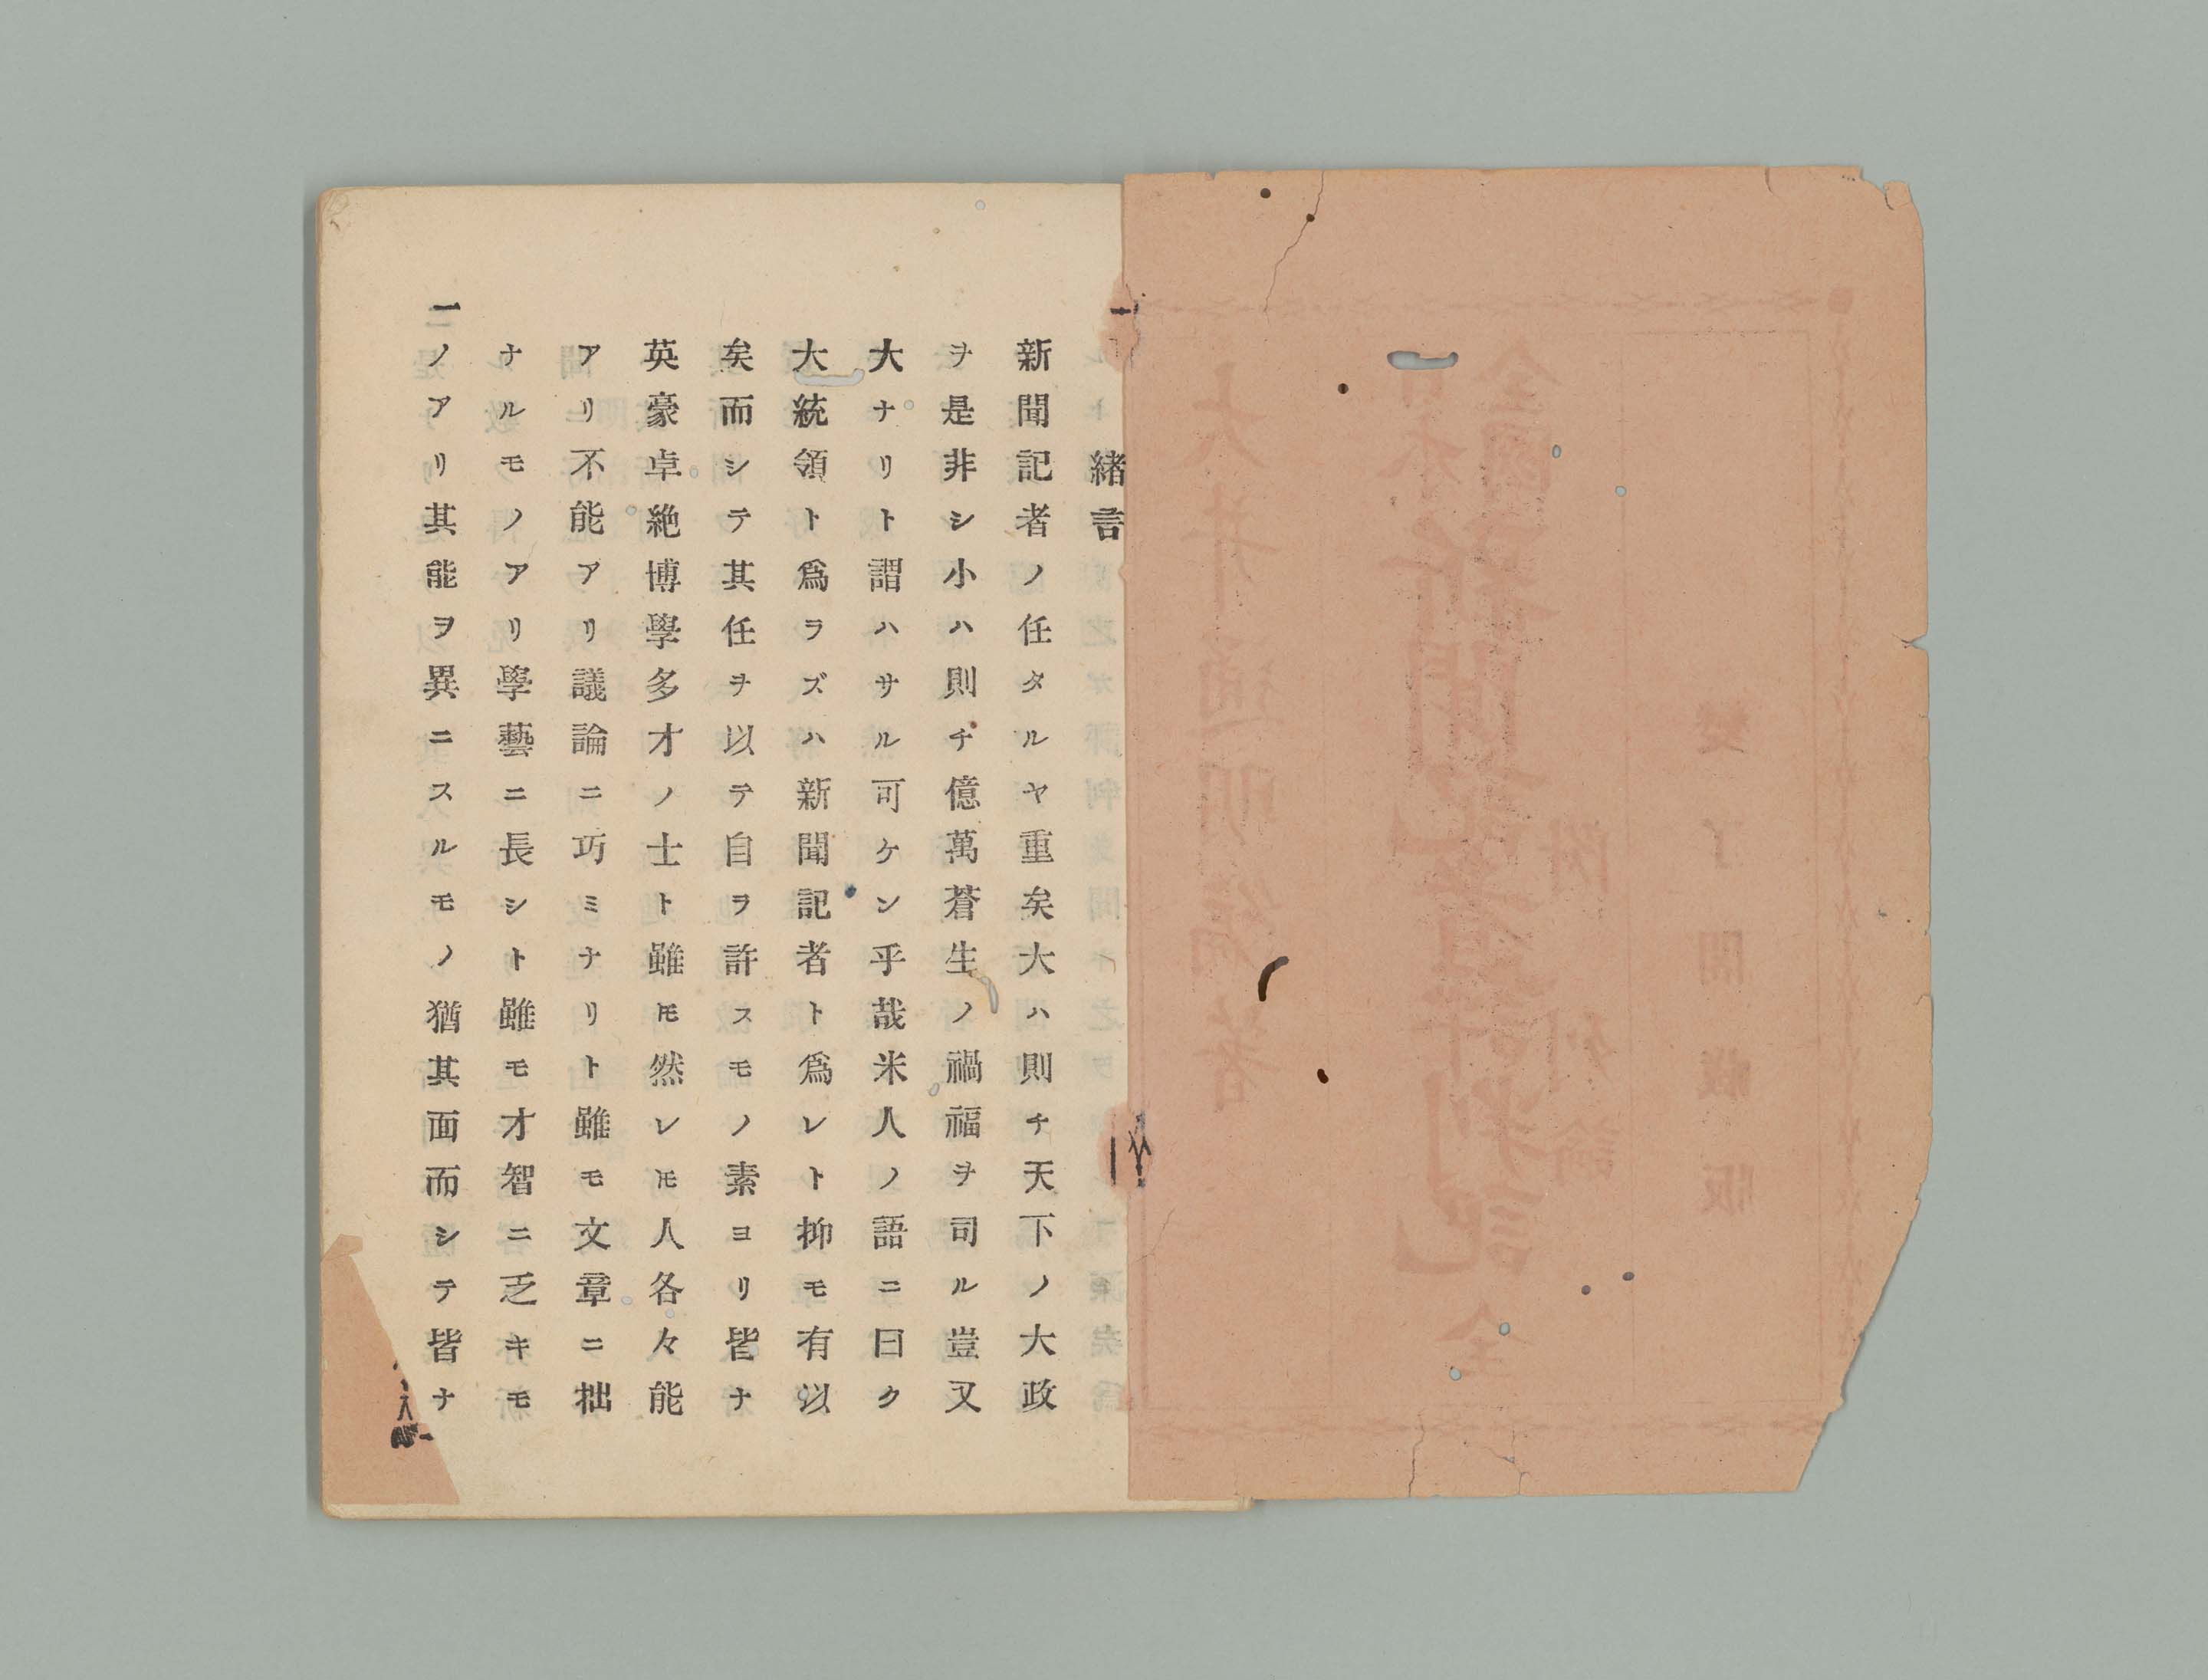 緒言
新聞記者ノ任タルヤ重矣大ハ則チ天下ノ大政
ヲ是非シ小ハ則チ億萬蒼生ノ禍福ヲ司ル豈又
大ナリト謂ハサル可ケン乎哉米人ノ語ニ曰ク
大統領ト爲ラズハ新聞記者ト爲レト抑モ有以
矣而シテ其任ヲ以テ自ラ許スモノ素ヨリ皆ナ
英豪卓絶博學多才ノ士ト雖𪜈然レ𪜈人各々能
アリ不能アリ議論ニ巧ミナリト雖モ文章ニ拙
ナルモノアリ學藝ニ長シト雖モ才智ニ乏キモ
ノアリ其能ヲ異ニスルモノ猶其面而シテ皆ナ
一